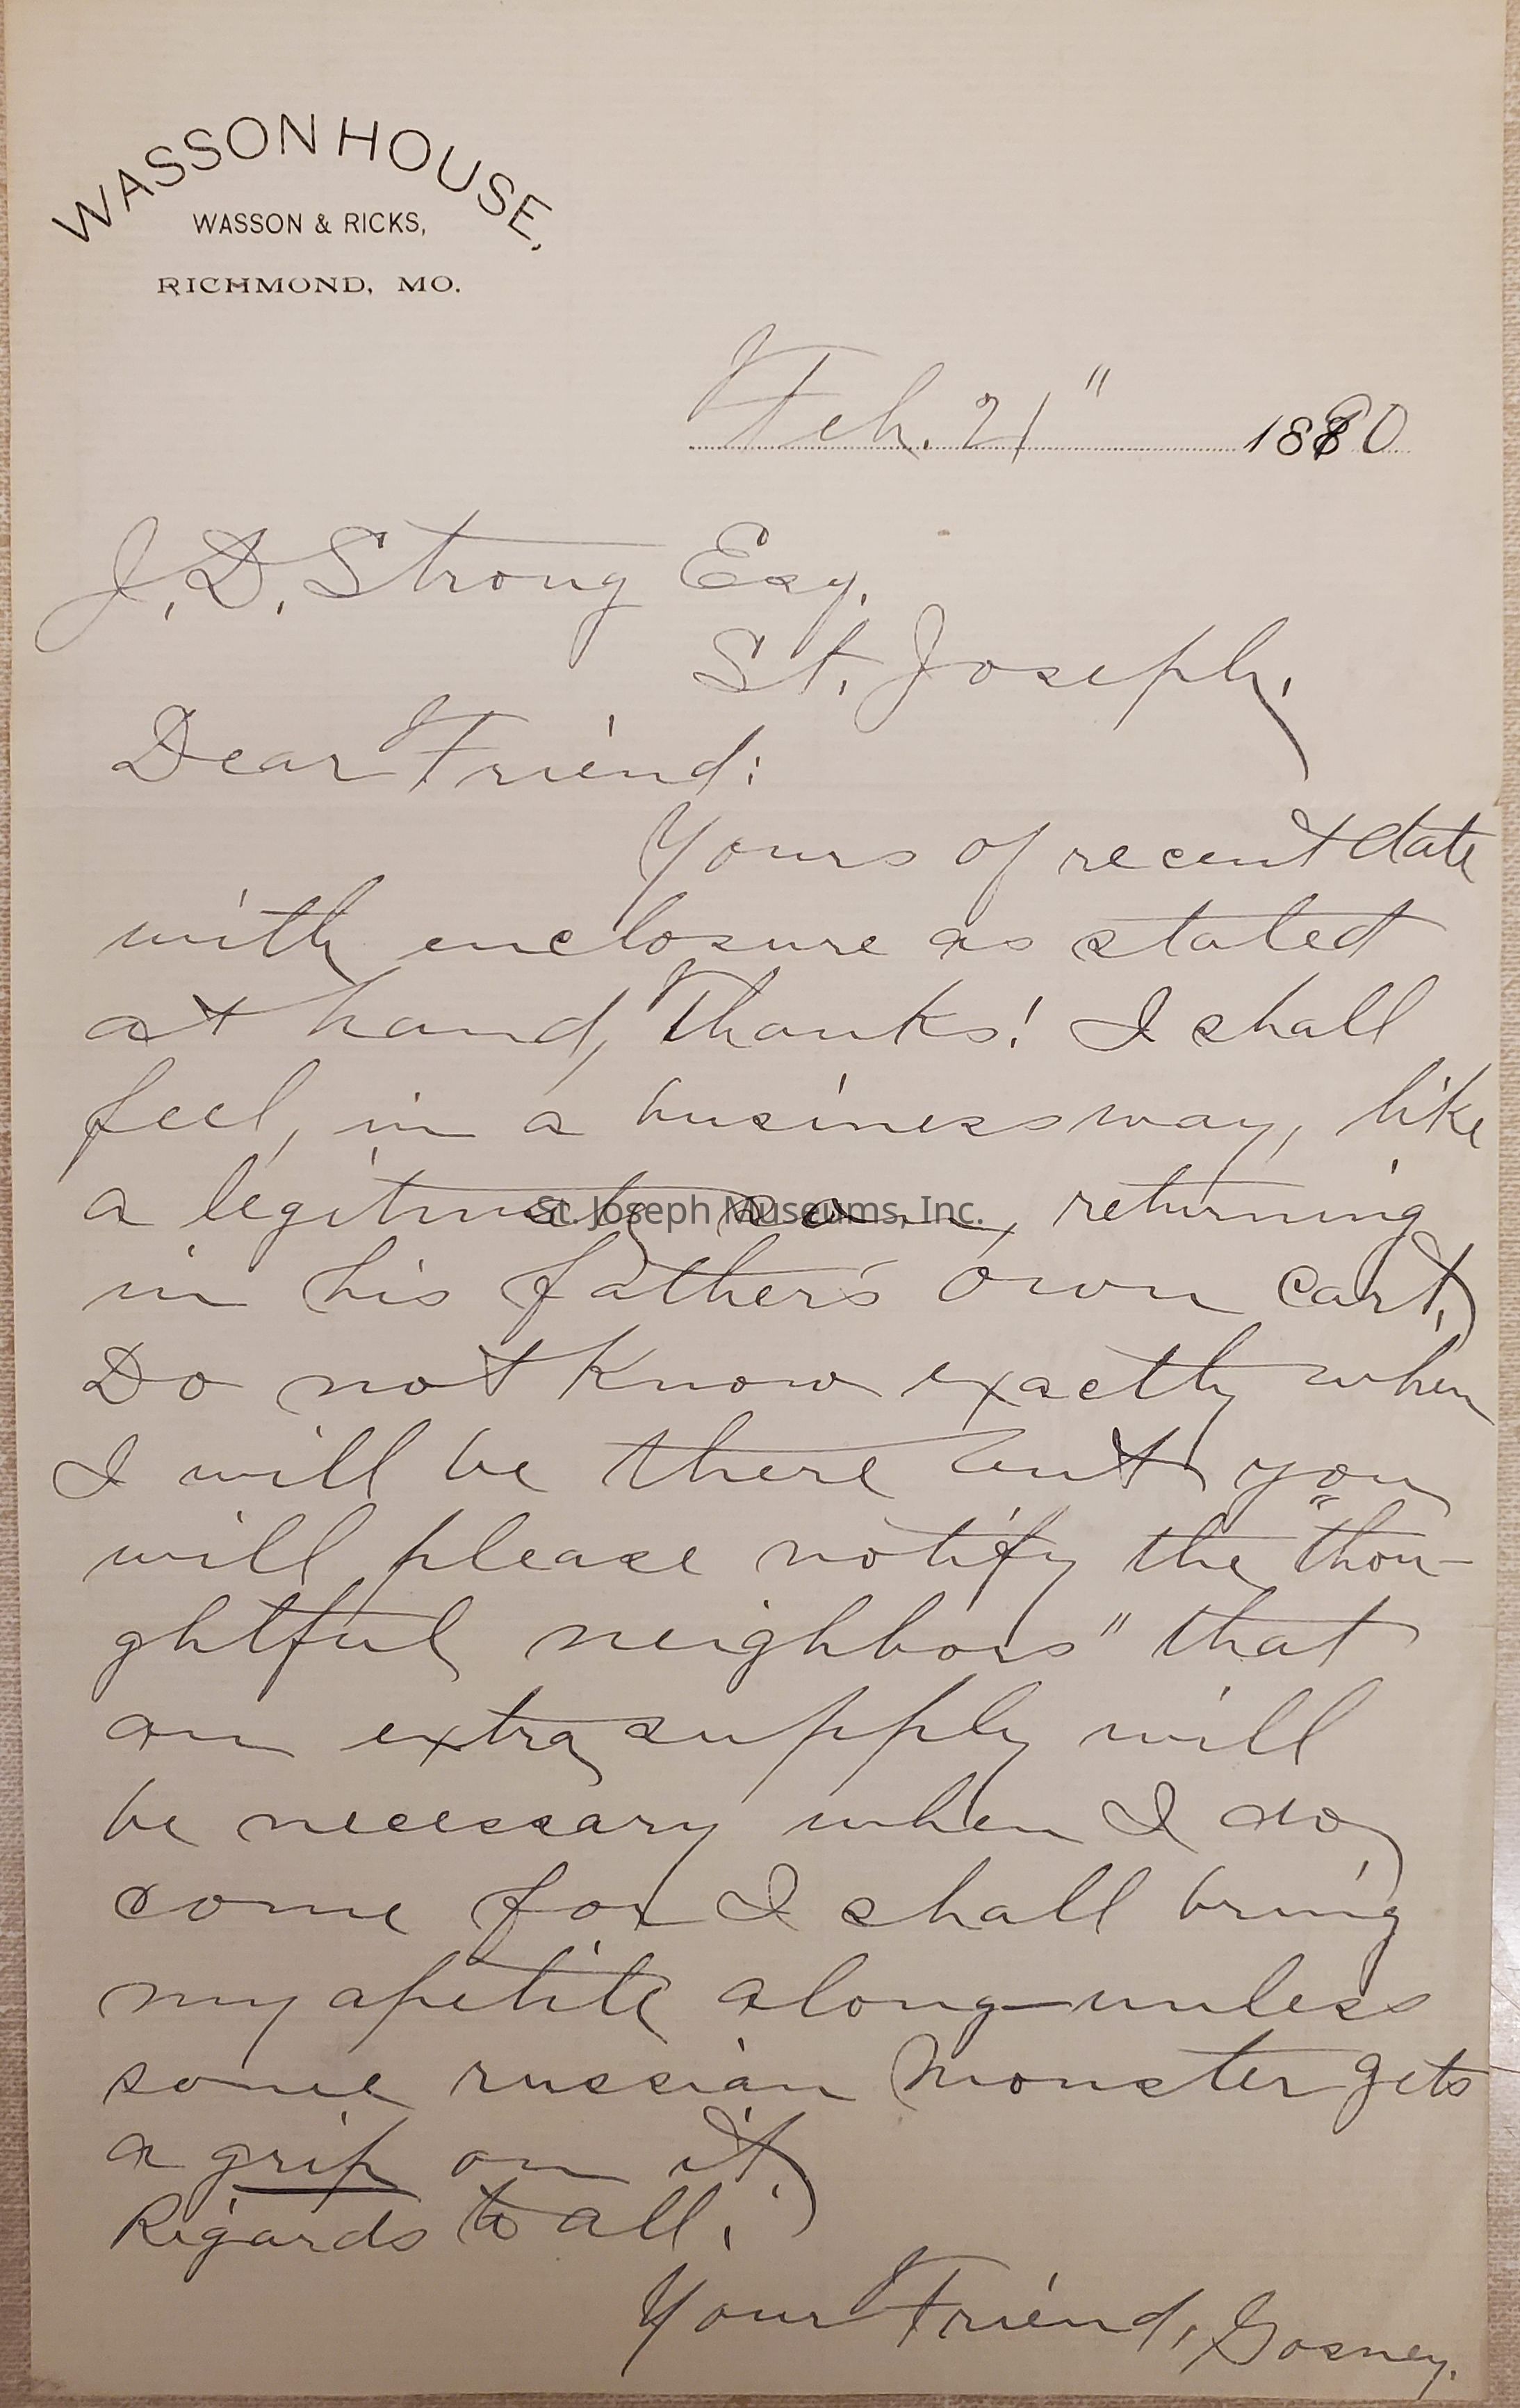 WASSON HOUSE.
WASSON & RICKS,
RICHMOND, MO.
Feb. 21" 1890
J. D. Strong Esq.
St. Joseph.
Dear Friend:
Yours of recent date
with enclosure as stated
at hand, Thanks! I shall
feel, in a business way, like
a legitimate son, returning
St. Joseph Museums, Inc.
in his father's own cart.
Do not know exactly when
I will be there but you
will please notify the "thou-
ghtful neighbors" that
an extra supply will
be necessary when I do
come for I shall bring
my apetite along—unless
some russian monster gets
a grip on it.
Regards to all.
Your Friend, Gosney.